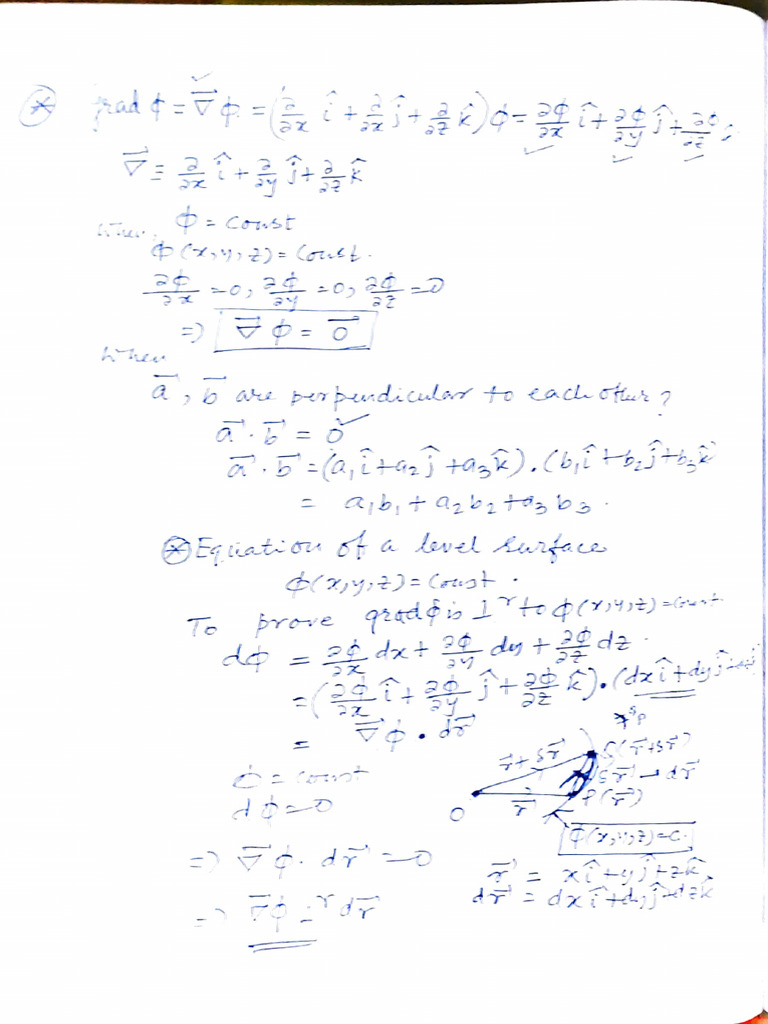 ⊛ grad ϕ = ∇⃗ ϕ = (∂/∂x î + ∂/∂x ĵ + ∂/∂z k̂) ϕ = ∂ϕ/∂x î + ∂ϕ/∂y ĵ + ∂ϕ/∂z
∇⃗ ≡ ∂/∂x î + ∂/∂y ĵ + ∂/∂z k̂
When, ϕ = const
ϕ(x,y,z) = const.
∂ϕ/∂x = 0, ∂ϕ/∂y = 0, ∂ϕ/∂z = 0
=> ∇⃗ ϕ = 0⃗
When
a⃗, b⃗ are perpendicular to each other?
a⃗ · b⃗ = 0
a⃗ · b⃗ = (a₁î + a₂ĵ + a₃k̂) · (b₁î + b₂ĵ + b₃k̂
= a₁b₁ + a₂b₂ + a₃b₃ .
⊛ Equation of a level surface
ϕ(x,y,z) = const .
To prove gradϕ is ⊥ʳ to ϕ(x,y,z) = const.
dϕ = ∂ϕ/∂x dx + ∂ϕ/∂y dy + ∂ϕ/∂z dz .
= (∂ϕ/∂x î + ∂ϕ/∂y ĵ + ∂ϕ/∂z k̂) · (dx î + dy ĵ +
= ∇⃗ϕ · dr⃗
ϕ = const
dϕ = 0
=> ∇⃗ϕ · dr⃗ = 0
=> ∇⃗ϕ ⊥ʳ dr⃗
r⃗ + δr⃗
(r⃗ + δr⃗)
δr⃗ → dr⃗
P(r⃗)
O
r⃗
ϕ(x,y,z) = c.
r⃗ = xî + yĵ + zk̂
dr⃗ = dxî + dyĵ + dzk̂